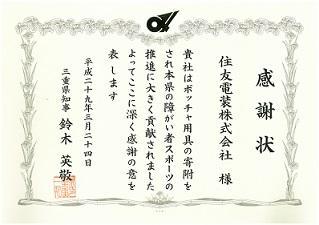 感謝状
住友電装株式会社 様
貴社はボッチャ用具の寄附を
され本県の障がい者スポーツの
推進に大きく貢献されました
よってここに深く感謝の意を
表します
平成二十九年三月二十四日
三重県知事 鈴木英敬